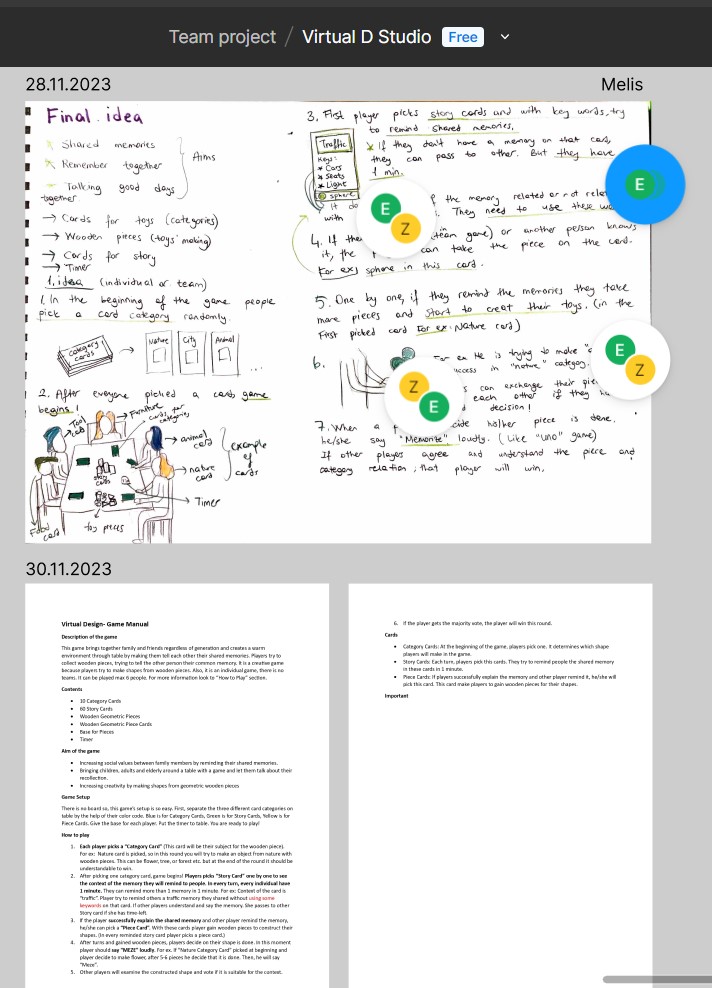 Team project / Virtual D Studio Free
28.11.2023
Melis
Final idea
Shared memories
Remember together
Talking good days
together
Aims
→ Cards for toys (categories)
→ Wooden pieces (toys' making)
→ Cards for story
→ Timer
1. idea (individual or team)
1. In the beginning of the game people
pick a card category randomly.
category cards
Nature
City
Animal
...
2. After everyone picked a card, game
begins!
Furniture
animal card
nature card
example of cards
story cards
Timer
Food card
toy pieces
3. First player picks story cards and with key words, try
to remind shared memories.
Traffic
Keys:
* Cars
* Seats
* Light
sphere
* If they don't have a memory on that card,
they can pass to other. But they have
1 min.
the memory related or not
with
They need to use these
4. If the
(team game) or another person knows
it, the
can take the piece on the card.
For ex, sphere in this card.
5. One by one, if they remind the memories they take
more pieces and start to creat their toys. (in the
First picked card for ex: Nature card)
6.
For ex He is trying to make
in "nature" category.
can exchange their
each other if they
decision!
7. When a
his/her piece is done,
he/she say "Memorite" loudly. (Like "uno" game)
If other players agree and understand the piece and
category relation, that player will win.
E
E
Z
E
Z
Z
E
30.11.2023
Virtual Design- Game Manual
Description of the game
This game brings together family and friends regardless of generation and creates a warm
environment through table by making them tell each other their shared memories. Players try to
collect wooden pieces, trying to tell the other person their common memory. It is a creative game
because players try to make shapes from wooden pieces. Also, it is an individual game, there is no
teams. It can be played max 6 people. For more information look to "How to Play" section.
Contents
• 10 Category Cards
• 60 Story Cards
• Wooden Geometric Pieces
• Wooden Geometric Piece Cards
• Base for Pieces
• Timer
Aim of the game
• Increasing social values between family members by reminding their shared memories.
• Bringing children, adults and elderly around a table with a game and let them talk about their
recollection.
• Increasing creativity by making shapes from geometric wooden pieces
Game Setup
There is no board so, this game's setup is so easy. First, separate the three different card categories on
table by the help of their color code. Blue is for Category Cards, Green is for Story Cards, Yellow is for
Piece Cards. Give the base for each player. Put the timer to table. You are ready to play!
How to play
1. Each player picks a "Category Card" (This card will be their subject for the wooden piece).
For ex: Nature card is picked, so in this round you will try to make an object from nature with
wooden pieces. This can be flower, tree, or forest etc. but at the end of the round it should be
understandable to win.
2. After picking one category card, game begins! Players picks "Story Card" one by one to see
the context of the memory they will remind to people. In every turn, every individual have
1 minute. They can remind more than 1 memory in 1 minute. For ex: Context of the card is
"traffic". Player try to remind others a traffic memory they shared without using some
keywords on that card. If other players understand and say the memory. She passes to other
Story card if she has time-left.
3. If the player successfully explain the shared memory and other player remind the memory,
he/she can pick a "Piece Card". With these cards player gain wooden pieces to construct their
shapes. (In every reminded story card player picks a piece card.)
4. After turns and gained wooden pieces, players decide on their shape is done. In this moment
player should say "MEZE" loudly. For ex. If "Nature Category Card" picked at beginning and
player decide to make flower, after 5-6 pieces he decide that it is done. Then, he will say
"Meze".
5. Other players will examine the constructed shape and vote if it is suitable for the context.
6. If the player gets the majority vote, the player will win this round.
Cards
• Category Cards: At the beginning of the game, players pick one. It determines which shape
players will make in the game.
• Story Cards: Each turn, players pick this cards. They try to remind people the shared memory
in these cards in 1 minute.
• Piece Cards: If players successfully explain the memory and other player remind it, he/she will
pick this card. This card make players to gain wooden pieces for their shapes.
Important